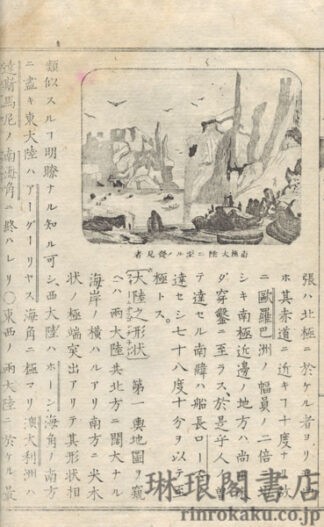 南極大陸ニ至ル瞥見者
張ハ北極ニ於ケル者ヨリ
ホ其赤道ニ近キヿ十度ナリ故
ニ歐羅巴洲ノ幅員ノ二倍
シキ南極近邊ノ地方ハ尚
ダ穿鑿ニ至ラス、於是乎人ノ
テ達セル南辟ハ船長ロース
達セシ七十八度十分ヲ以テ
極トス。
大陸之形状 第一輿地圖ヲ窺
ヘハ兩大陸共北方ニ闊大ナル
海岸ノ横ハルアリ南方ニ尖米
状ノ極端突出アリテ其形狀相
類似スルヿ明瞭ナル知ル可シ西大陸ハホーン海角ノ南方
ニ盡キ東大陸ハアーグーリヤス海角ニ極マリ澳大利洲ハ
達斯馬尼ノ南海角ニ終ハレリ〇東西ノ兩大陸ニ於ケル最
琳琅閣書店
rinrokaku.co.jp